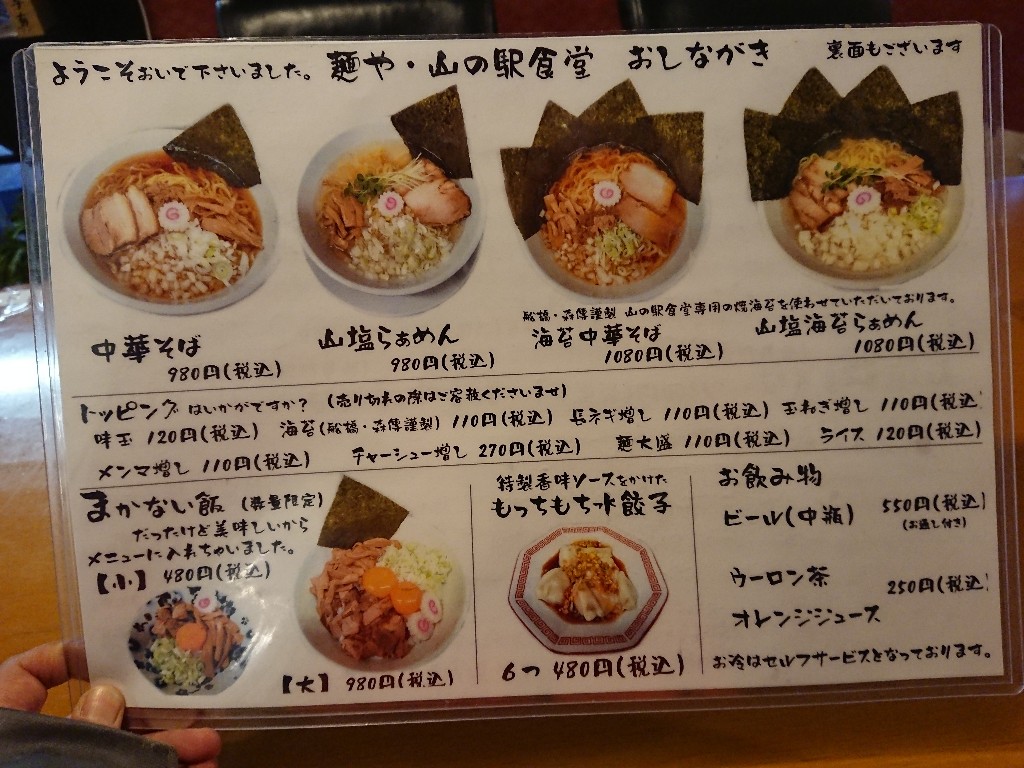 ようこそおいで下さいました。 麺や・山の駅食堂 おしながき 裏面もございます
中華そば
980円(税込)
山塩らぁめん
980円(税込)
船橋・森傳謹製 山の駅食堂専用の焼海苔を使わせていただいております。
海苔中華そば
1080円(税込)
山塩海苔らぁめん
1080円(税込)
トッピングはいかがですか? (売り切れの際はご容赦くださいませ)
味玉 120円(税込) 海苔(船橋・森傳謹製) 110円(税込) 長ネギ増し 110円(税込) 玉ねぎ増し 110円(税込)
メンマ増し 110円(税込) チャーシュー増し 270円(税込) 麺大盛 110円(税込) ライス 120円(税込)
まかない飯 (数量限定)
だったけど美味しいから
メニューに入れちゃいました。
【小】 480円(税込)
【大】 980円(税込)
特製香味ソースをかけた
もっちもち水餃子
6つ 480円(税込)
お飲み物
ビール(中瓶) 550円(税込)
(お通し付き)
ウーロン茶
250円(税込)
オレンジジュース
お冷はセルフサービスとなっております。